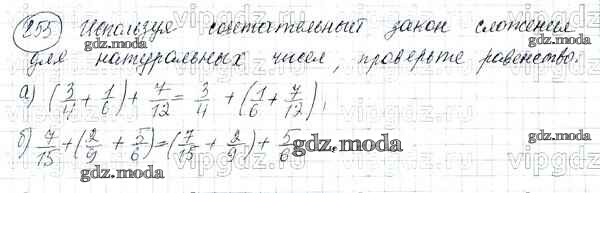 255 Используя сочетательный закон сложения
для натуральных чисел, проверьте равенство:
а) (3/4 + 1/6) + 7/12 = 3/4 + (1/6 + 7/12),
б) 7/15 + (2/9 + 5/6) = (7/15 + 2/9) + 5/6
gdz.moda
gdz.moda
gdz.moda
gdz.moda
gdz.moda
gdz.moda
gdz.moda